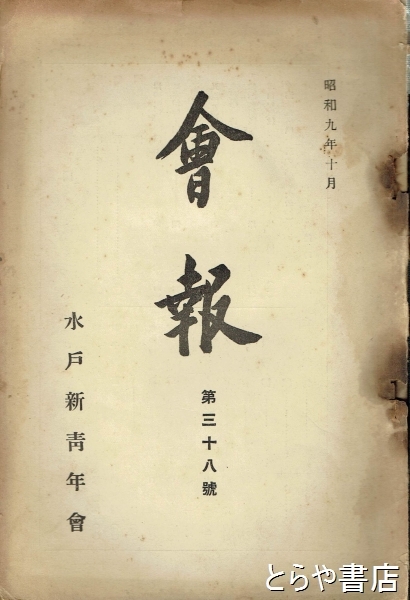 昭和九年十月
會報
第三十八號
水戶新靑年會
とらや書店